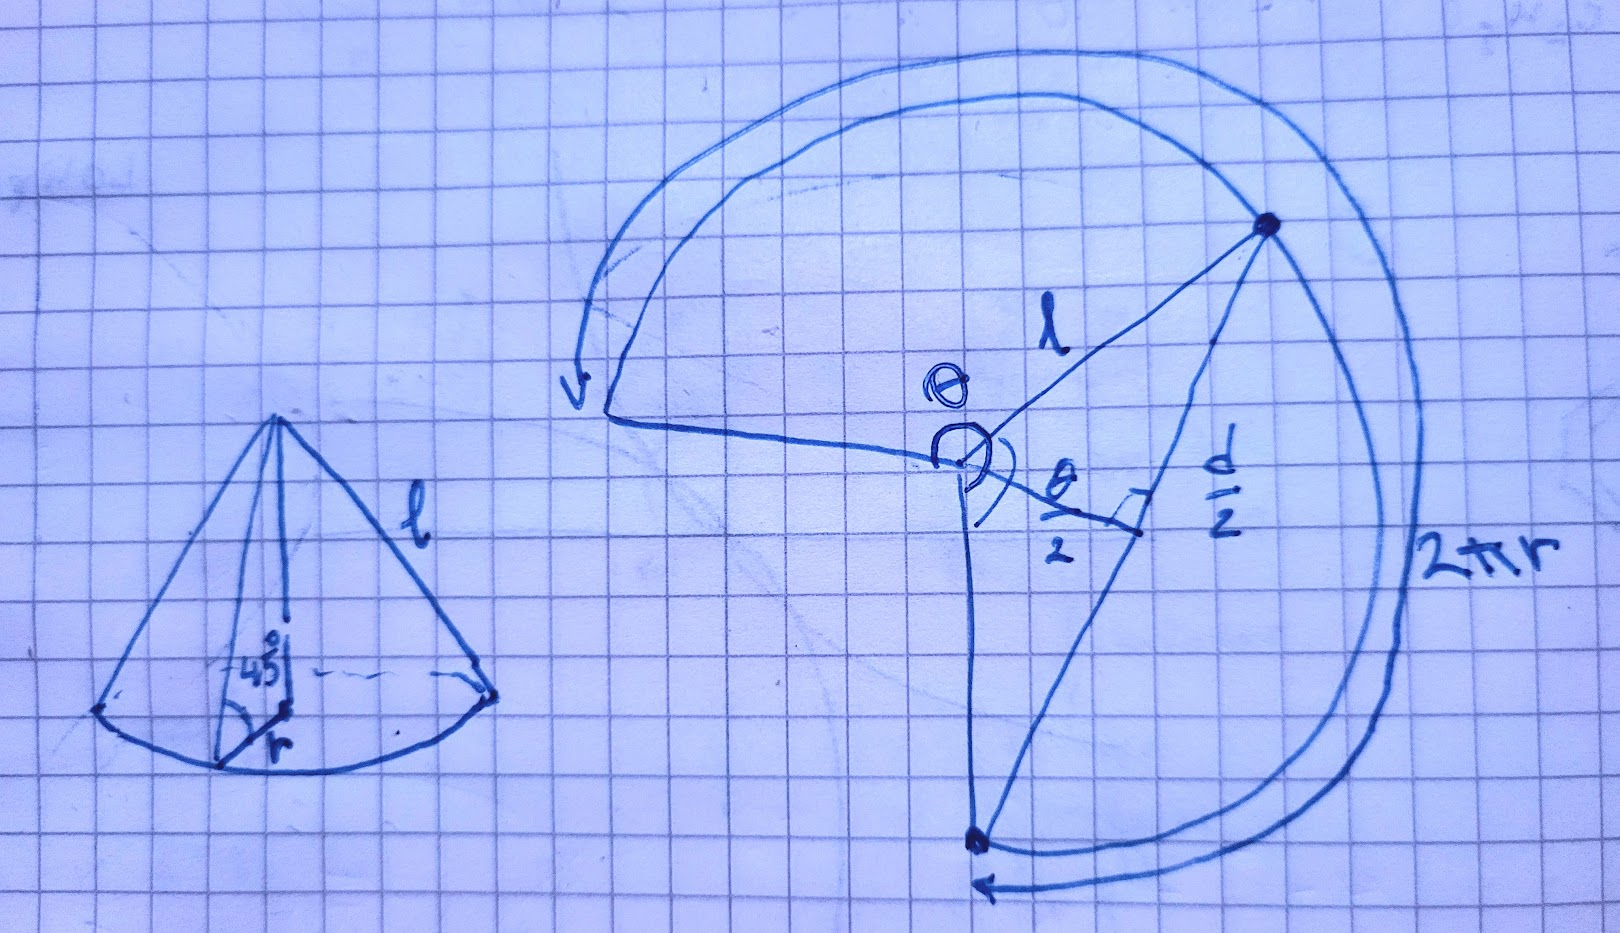 l
45°
r
θ
l
θ/2
d/2
2πr